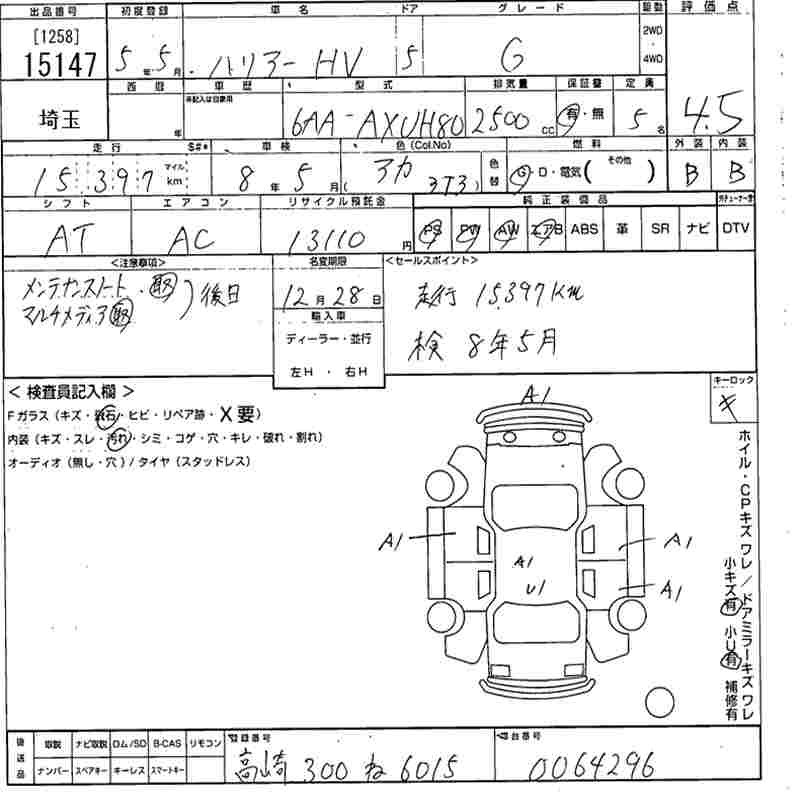 出品番号 初度登録 車名 ドア グレード 駆動 評価点
[1258]
15147 5年5月 ハリアー HV 5 G 2WD・4WD 4.5
西暦 年 車歴 型式 排気量 保証書 定員
未記入は自家用
埼玉 6AA-AXUH80 2500cc 有・無 5名
走行 S#* 車検 色(Col.No) 燃料 外装 内装
15397 マイル km 8年5月 アカ (3T3) 色替 G・D・電気(その他) B B
シフト エアコン リサイクル預託金 純正装備品
AT AC 13110円 PS PW AW エアB ABS 革 SR ナビ DTV
<注意事項> 名変期限 <セールスポイント>
メンテナンスノート・取 )後日 12月28日 走行 15,397Km
マルチメディア取
輸入車
ディーラー・並行 検 8年5月
左H ・ 右H
<検査員記入欄> キーロック
キ
Fガラス(キズ・飛石・ヒビ・リペア跡・X要)
内装(キズ・スレ・汚れ・シミ・コゲ・穴・キレ・破れ・割れ)
オーディオ(無し・穴)/タイヤ(スタッドレス)
A1
A1 A1
A1
U1 A1
ホイル・CPキズ ワレ/ドアミラーキズ ワレ
小キズ有 小U有 補修有
後送品 取説 ナビ取説 ロム/SD B-CAS リモコン 登録番号 車台番号
ナンバー スペアキー キーレス スマートキー 高崎 300 ね 6015 0064296